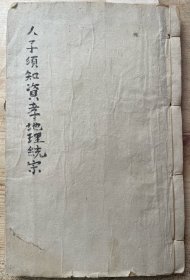 人子須知資孝地理統宗